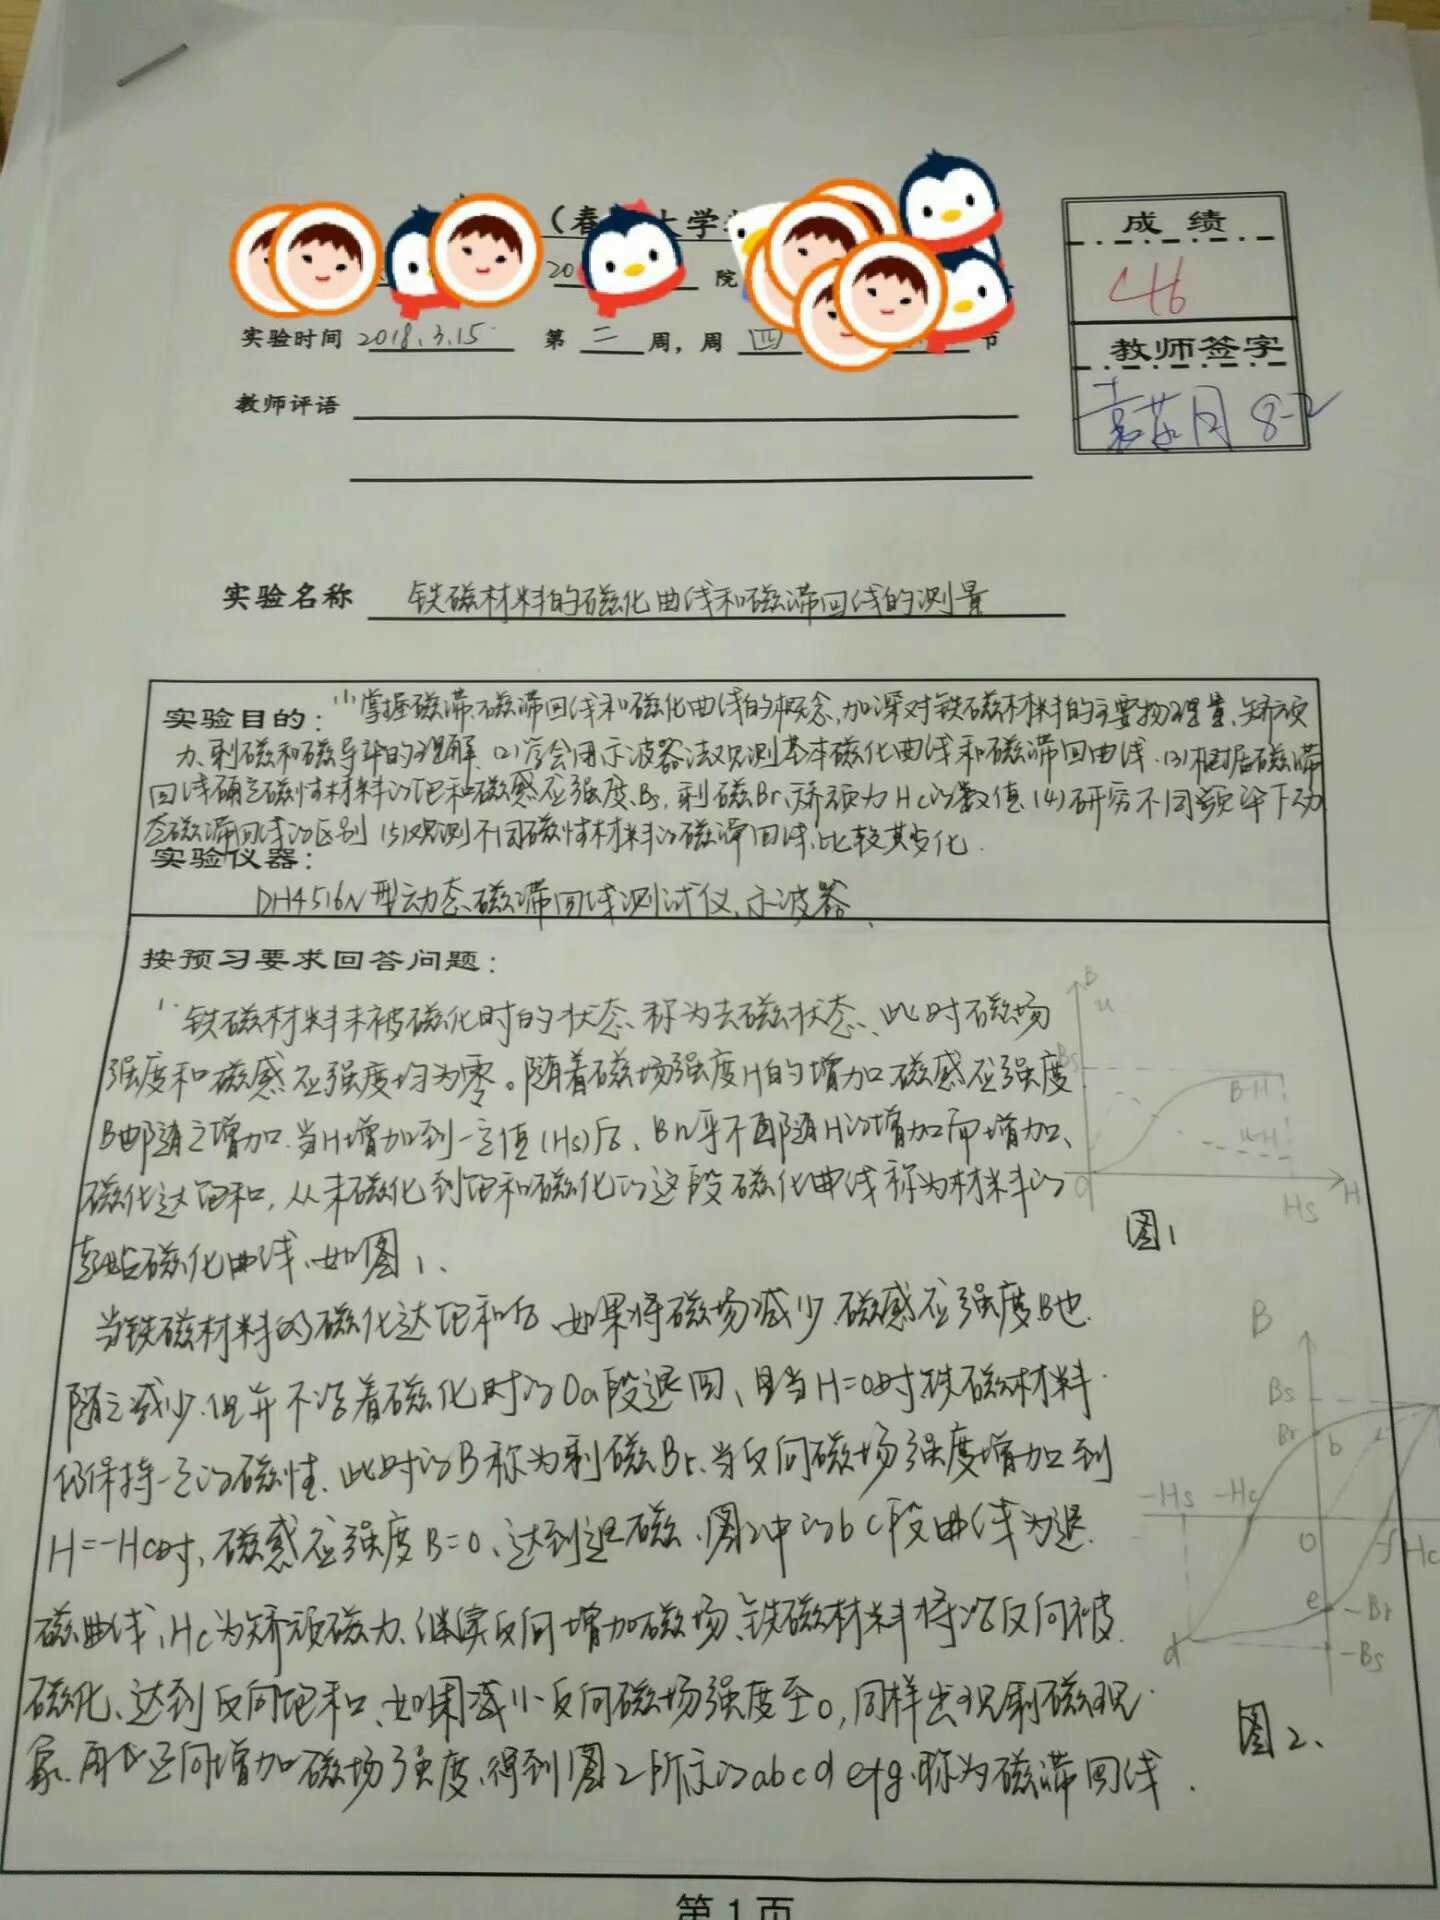 （春 大学
成绩
20 院
46
实验时间 2018.3.15 第 二 周，周 四 节
教师签字
教师评语
8-2
实验名称 铁磁材料的磁化曲线和磁滞回线的测量
实验目的：(1)掌握磁滞、磁滞回线和磁化曲线的概念,加深对铁磁材料的主要物理量、矫顽
力、剩磁和磁导率的理解.(2)学会用示波器法观测基本磁化曲线和磁滞回曲线.(3)根据磁滞
回线确定磁性材料的饱和磁感应强度、Bs,剩磁Br、矫顽力Hc的数值(4)研究不同频率下动
态磁滞回线的区别(5)观测不同磁性材料的磁滞回线,比较其变化.
实验仪器：
DH4516N型动态磁滞回线测试仪、示波器、
按预习要求回答问题：
1. 铁磁材料未被磁化时的状态、称为去磁状态、此时磁场
强度和磁感应强度均为零。随着磁场强度H的增加磁感应强度
B也随之增加.当H增加到一定值(Hs)后、B几乎不再随H的增加而增加、
磁化达饱和,从未磁化到饱和磁化的这段磁化曲线称为材料的
起始磁化曲线、如图1、
B
μ
Bs
B-H
μ-H
O
Hs
H
图1
当铁磁材料的磁化达饱和后、如果将磁场减少.磁感应强度B也
随之减少.但并不沿着磁化时的Oa段退回、且当H=0时铁磁材料
仍保持一定的磁性.此时的B称为剩磁Br、当反向磁场强度增加到
H=-Hc时、磁感应强度B=0、达到退磁.图2中的bc段曲线为退
磁曲线、Hc为矫顽磁力、继续反向增加磁场、铁磁材料将沿反向被
磁化、达到反向饱和、如果减小反向磁场强度至0,同样出现剩磁现
象.再正向增加磁场强度、得到图2所示的abcdefg.称为磁滞回线.
B
Bs
Br
b
-Hs
-Hc
O
f
Hc
e
-Br
d
-Bs
图2、
第1页